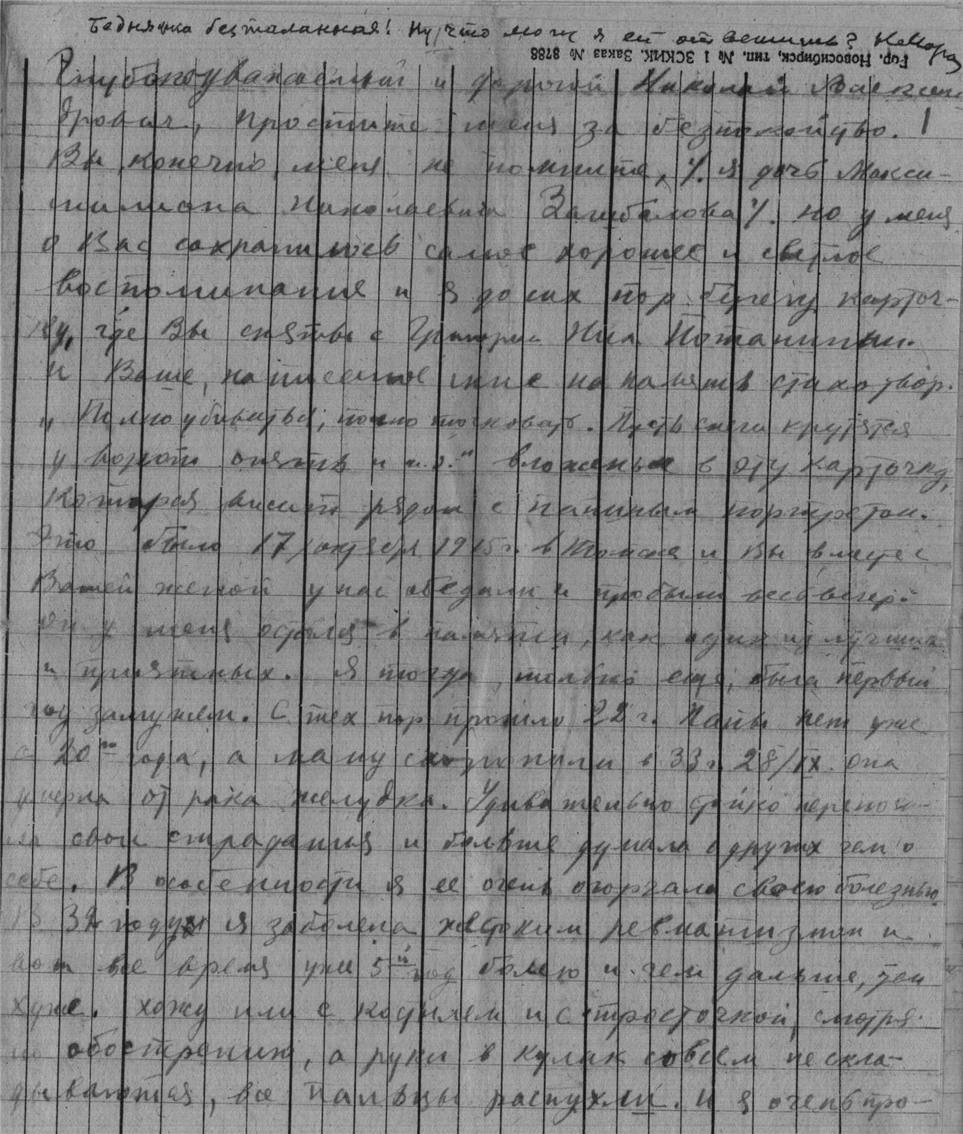 Беднянка безталанная! Ну, что могу я ей ответить? НМороз
Гор. Новосибирск, тип. № 1 ЗСКМК. Заказ № 8788
Глубокоуважаемый и дорогой Николай Алексан-
дрович, простите меня за безпокойство.
Вы, конечно, меня не помните, /. я дочь Макси-
милиана Николаевича Загибалова /. но у меня
о Вас сохранилось самое хорошее и светлое
воспоминание и я до сих пор берегу карточ-
ку, где Вы сняты с Григорием Ник. Потаниным.
и Ваше, написанное мне на память стихотвор.
„Полно убиваться, полно тосковать. Пусть снега крутятся
у ворот опять и т. д." вложенные в эту карточку,
которая висит рядом с папиным портретом.
Это было 17 октября 1915 г. в Томске и Вы вместе с
Вашей женой у нас обедали и пробыли весь вечер.
Он у меня остался в памяти, как один из лучших
и приятных. Я тогда, только еще, была первый
год замужем. С тех пор прошло 22 г. Папы нет уже
с 20го года, а маму схоронили в 33 г. 28/IX. она
умерла от рака желудка. Удивительно стойко переноси-
ла свои страдания и больше думала о других чем о
себе. В особенности я ее очень огорчала своею болезнью.
В 32 году я заболела жестоким ревматизмом и
вот все время уже 5й год болею и чем дальше, тем
хуже. хожу или с костылем и с тросточкой, смотря
по обострению, а руки в кулак совсем не скла-
дываются, все пальцы распухли. И я очень про-